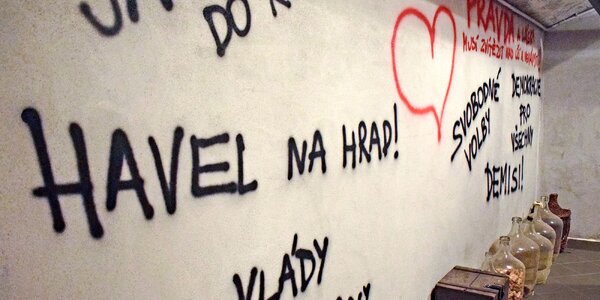 DO
HAVEL NA HRAD!
VLÁDY
PRAVDA A LÁSKA
MUSÍ ZVÍTĚZIT NAD LŽÍ A NENÁVISTÍ
SVOBODNÉ
VOLBY
DEMOKRACIE
PRO
VŠECHNY
DEMISI!